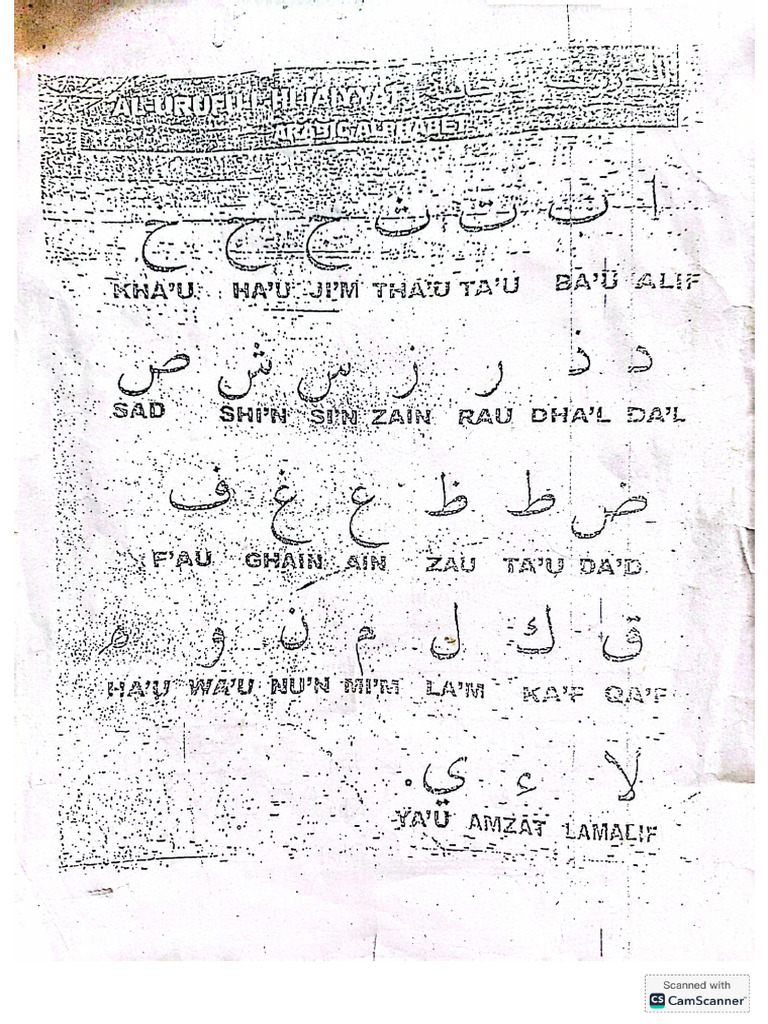 AL-URUFUL-HIJAIYYAT
ARABIC ALPHABET
ا ب ت ث ج ح خ
KHA'U HA'U JI'M THA'U TA'U BA'U ALIF
د ذ ر ز س ش ص
SAD SHI'N SI'N ZAIN RAU DHA'L DA'L
ض ط ظ ع غ ف
F'AU GHAIN AIN ZAU TA'U DA'D
ق ك ل م ن و ه
HA'U WA'U NU'N MI'M LA'M KA'F QA'F
لا ء ي
YA'U AMZAT LAMALIF
Scanned with
CS CamScanner